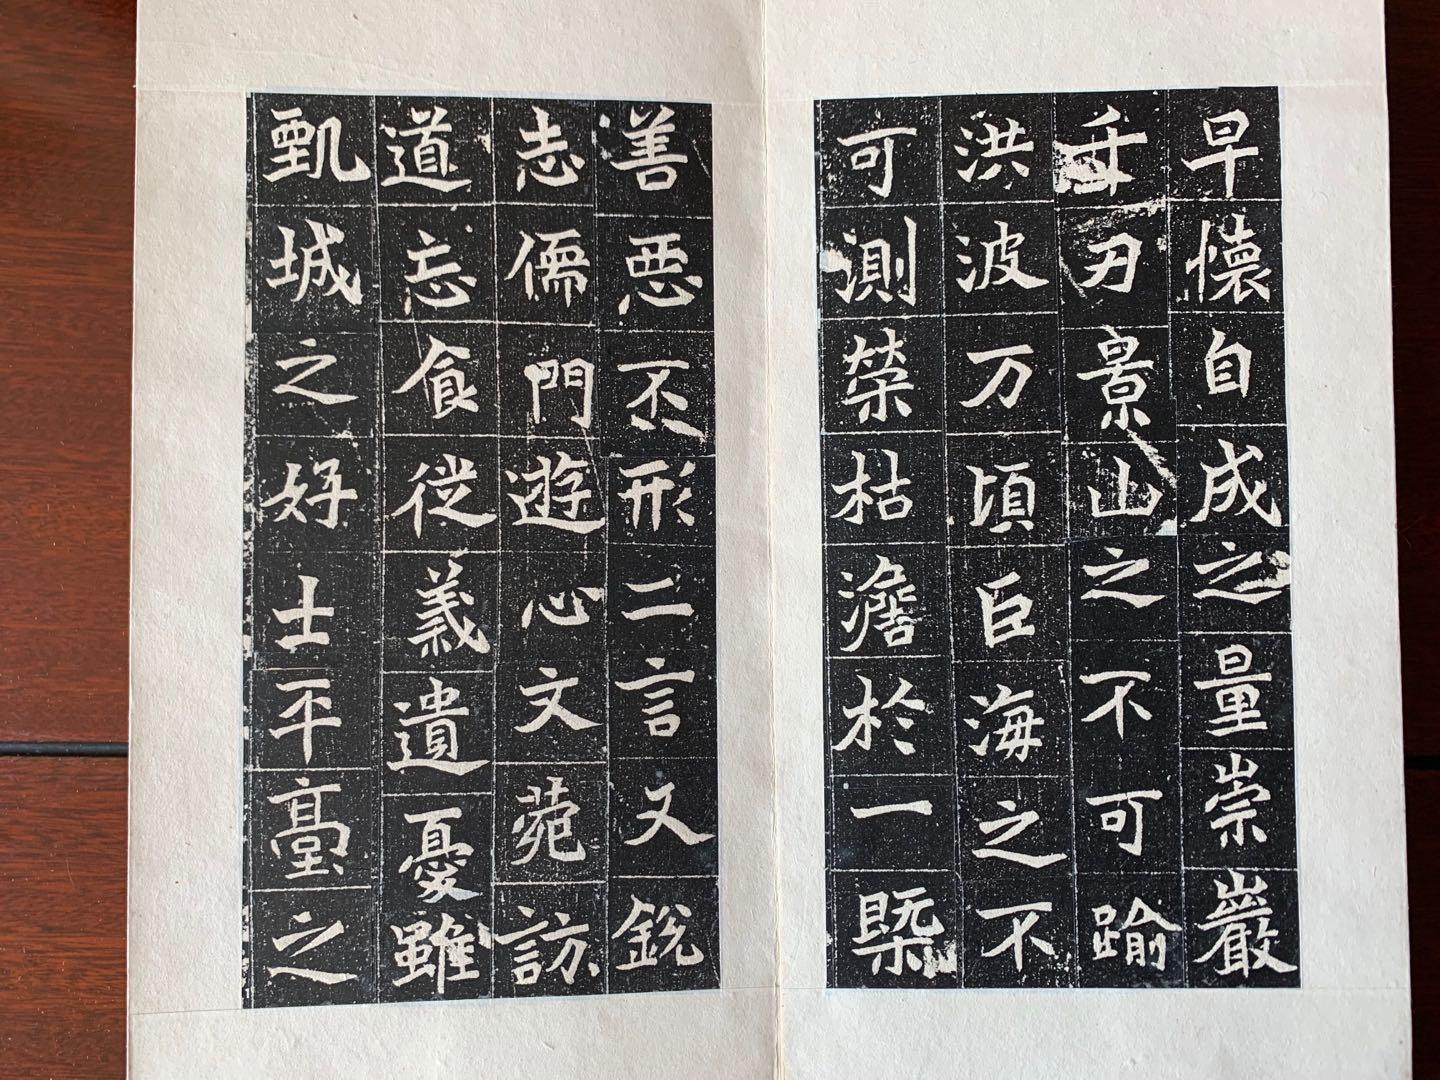 早懷自成之量崇巖
千刃景山之不可踰
洪波万頃巨海之不
可測榮枯澹於一槩
善惡丕形二言又銳
志儒門遊心文菀訪
道忘食從義遺憂雖
甄城之好士平臺之